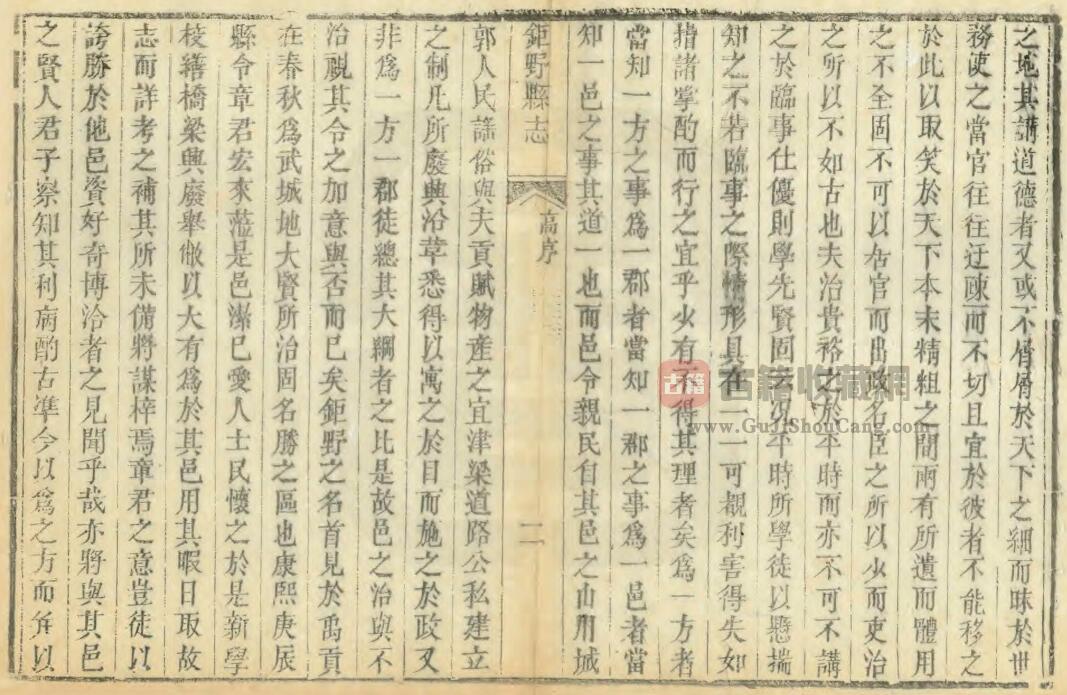 之地其講道德者又或不屑屑於天下之細而昧於世
務使之當官往往迂疎而不切且宜於彼者不能移之
於此以取笑於天下本末精粗之間兩有所遺而體用
之不全固不可以居官而出政名臣之所以少而吏治
之所以不如古也夫治貴裕之於平時而亦不可不講
之於臨事仕優則學先賢固云况平時所學徒以懸揣
知之不若臨事之際情形具在一一可觀利害得失如
指諸掌酌而行之宜乎少有不得其理者矣為一方者
當知一方之事為一郡者當知一郡之事為一邑者當
知一邑之事其道一也而邑令親民自其邑之山川城
鉅野縣志
高序
二
郭人民謡俗與夫貢賦物產之宜津梁道路公私建立
之制凡所廢興沿革悉得以寓之於目而施之於政又
非為一方一郡徒總其大綱者之比是故邑之治與不
治視其令之加意與否而已矣鉅野之名首見於禹貢
在春秋為武城地大賢所治固名勝之區也康熙庚辰
縣令章君宏來蒞是邑潔已愛人士民懷之於是新學
校繕橋梁興廢舉墜以大有為於其邑用其暇日取故
志而詳考之補其所未備將謀梓焉章君之意豈徒以
誇勝於他邑資好奇博洽者之見聞乎哉亦將與其邑
之賢人君子察知其利病酌古準今以為之方而猶以
古籍收藏網
www.GuJiShouCang.com